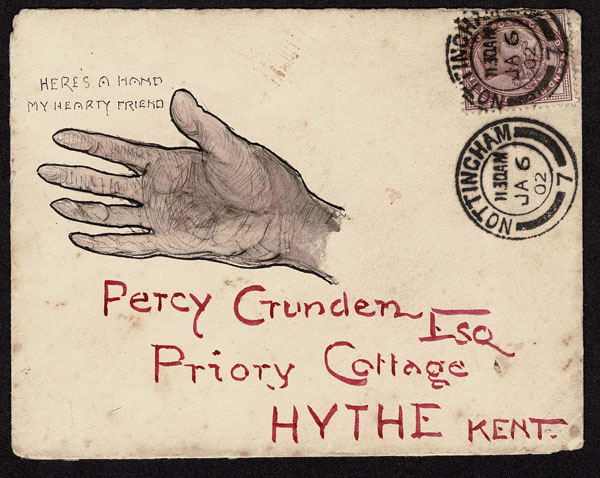 HERE'S A HAND
MY HEARTY FRIEND
NOTTINGHAM
11.30AM
JA 6
02
7
NOTTINGHAM
11.30AM
JA 6
02
7
Percy Crunden Esq
Priory Cottage
HYTHE KENT.